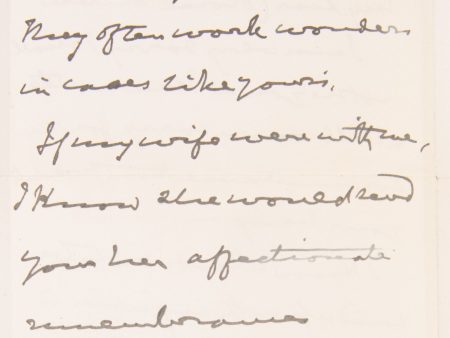 They often work wonders
in cases like yours.
If my wife were with me,
I know she would send
your her affectionate
remembrances